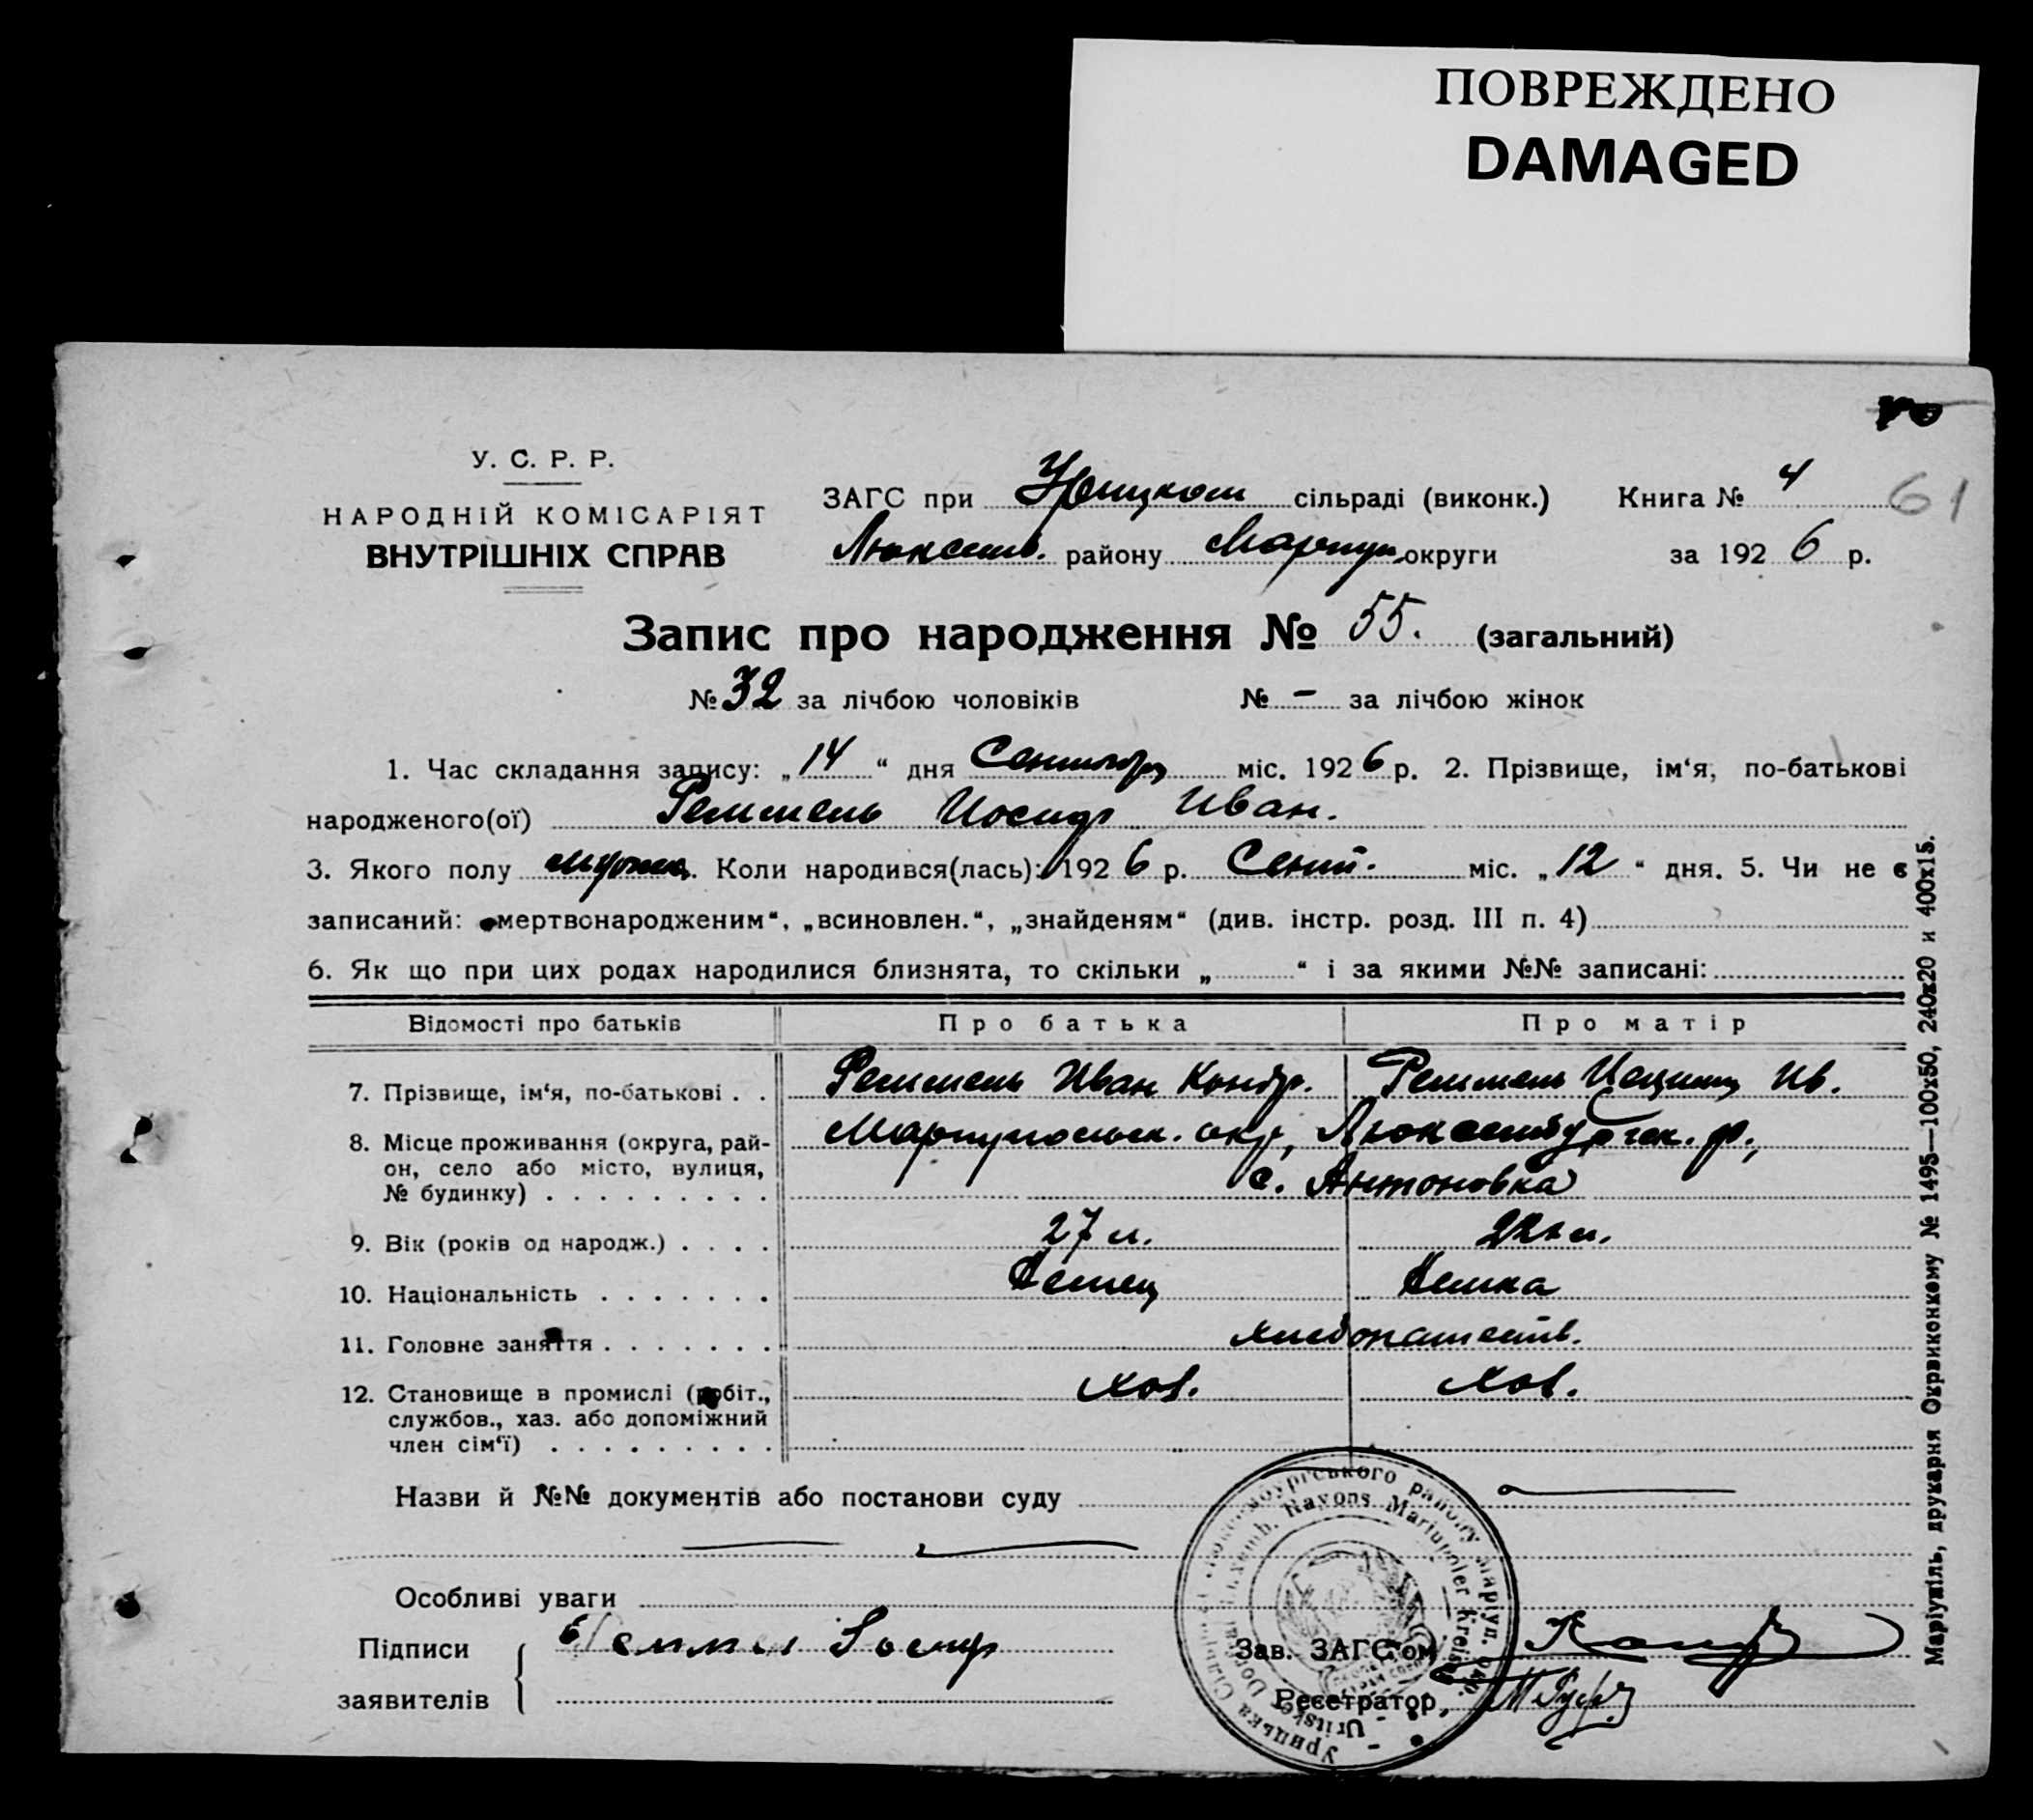 ПОВРЕЖДЕНО
DAMAGED
У. С. Р. Р.
НАРОДНІЙ КОМІСАРІЯТ
ВНУТРІШНІХ СПРАВ
ЗАГС при Урицком сільраді (виконк.) Книга № 4
61
Люксемб. району Мариуп. округи за 1926 р.
Запис про народження № 55. (загальний)
№ 32 за лічбою чоловіків № – за лічбою жінок
1. Час складання запису: „14“ дня Сентября міс. 1926 р. 2. Прізвище, ім‘я, по-батькові
народженого(ої) Реммель Иосиф Иван.
3. Якого полу мужск. Коли народився(лась): 1926 р. Сент. міс. „12“ дня. 5. Чи не є
записаний: „мертвонародженим“, „всиновлен.“, „знайденям“ (див. інстр. розд. III п. 4)
6. Як що при цих родах народилися близнята, то скільки „ “ і за якими №№ записані:
Відомості про батьків Про батька Про матір
7. Прізвище, ім‘я, по-батькові . . Реммель Иван Кондр. Реммель Ив.
8. Місце проживання (округа, рай- Мариупольск. окр., Люксембургск. р.,
он, село або місто, вулиця, с. Антоновка
№ будинку) . . . . . . . . .
9. Вік (років од народж.) . . . . 27 л. 22 л.
10. Національність . . . . . . . Немец Немка
11. Головне заняття . . . . . . . хлебопашеств.
12. Становище в промислі (робіт., хоз. хоз.
службов., хаз. або допоміжний
член сім‘ї) . . . . . . . . .
Назви й №№ документів або постанови суду
Особливі уваги
Підписи
заявителів
Зав. ЗАГС‘ом
Реєстратор
Урицька Сільрада Люксембургського району Маріуп. окр.
Uritsker Dorfrat Luxemb. Rayons Mariupoler Kreises
Маріупіль, друкарня Окрвиконкому № 1495—100х50, 240х20 и 400х15.